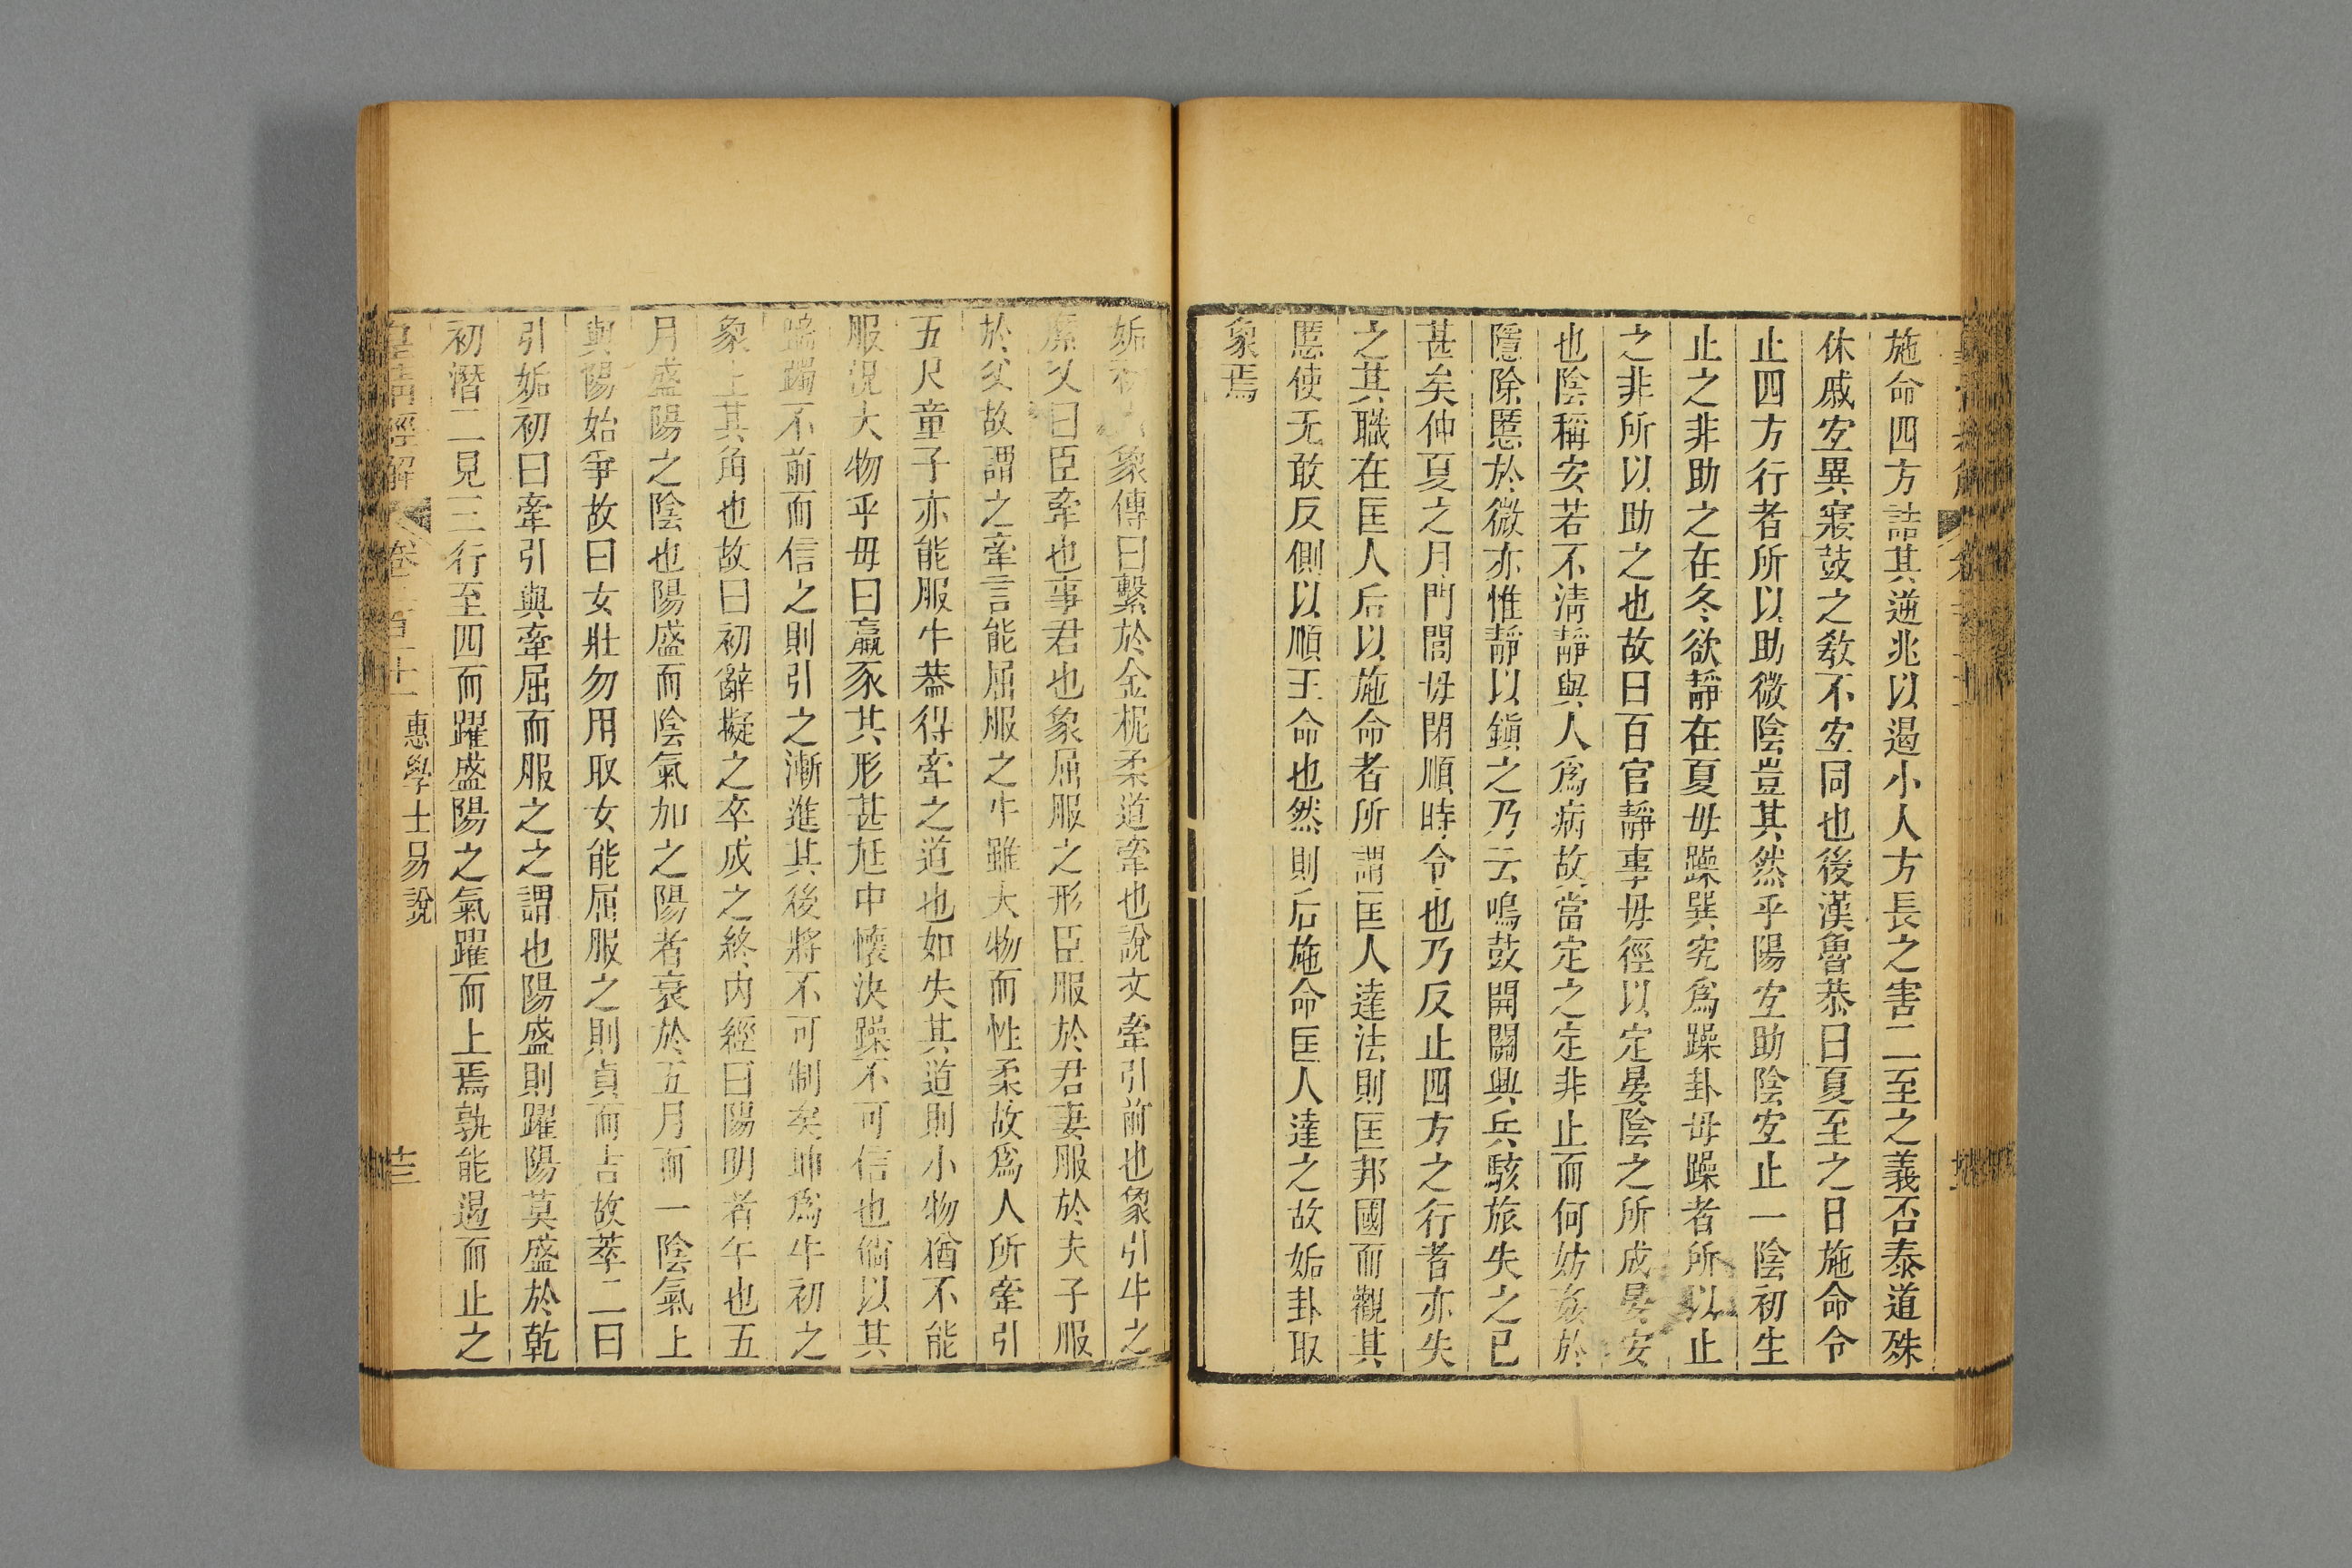 施命四方詰其逆兆以遏小人方長之害二至之義否泰道殊
休戚宐異寢鼓之敎不宐同也後漢魯恭曰夏至之日施命令
止四方行者所以助微陰豈其然乎陽宐助陰宐止一陰初生
止之非助之在冬欲靜在夏毋躁巽究爲躁卦毋躁者所以止
之非所以助之也故曰百官靜事毋徑以定晏陰之所成晏安
也陰稱安若不淸靜與人爲病故當定之定非止而何妨姦於
隱除慝於微亦惟靜以鎭之乃云鳴鼓開關興兵駭旅失之已
甚矣仲夏之月門閭毋閉順時令也乃反止四方之行者亦失
之其職在匡人后以施命者所謂匡人達法則匡邦國而觀其
慝使无敢反側以順王命也然則后施命匡人達之故姤卦取
象焉
姤初象傳曰繫於金柅柔道牽也說文牽引前也象引牛之
縻父曰臣牽也事君也象屈服之形臣服於君妻服於夫子服
於父故謂之牽言能屈服之牛雖大物而性柔故爲人所牽引
五尺童子亦能服牛葢得牽之道也如失其道則小物猶不能
服況大物乎毋曰羸豕其形甚尩中懷決躁不可信也倘以其
蹢躅不前而信之則引之漸進其後將不可制矣坤爲牛初之
象上其角也故曰初辭擬之卒成之終內經曰陽明者午也五
月盛陽之陰也陽盛而陰氣加之陽者衰於五月而一陰氣上
與陽始爭故曰女壯勿用取女能屈服之則貞而吉故萃二曰
引姤初曰牽引與牽屈而服之之謂也陽盛則躍陽莫盛於乾
初潛二見三行至四而躍盛陽之氣躍而上焉孰能遏而止之
皇淸經解 卷二百十一 惠學士易說 圭